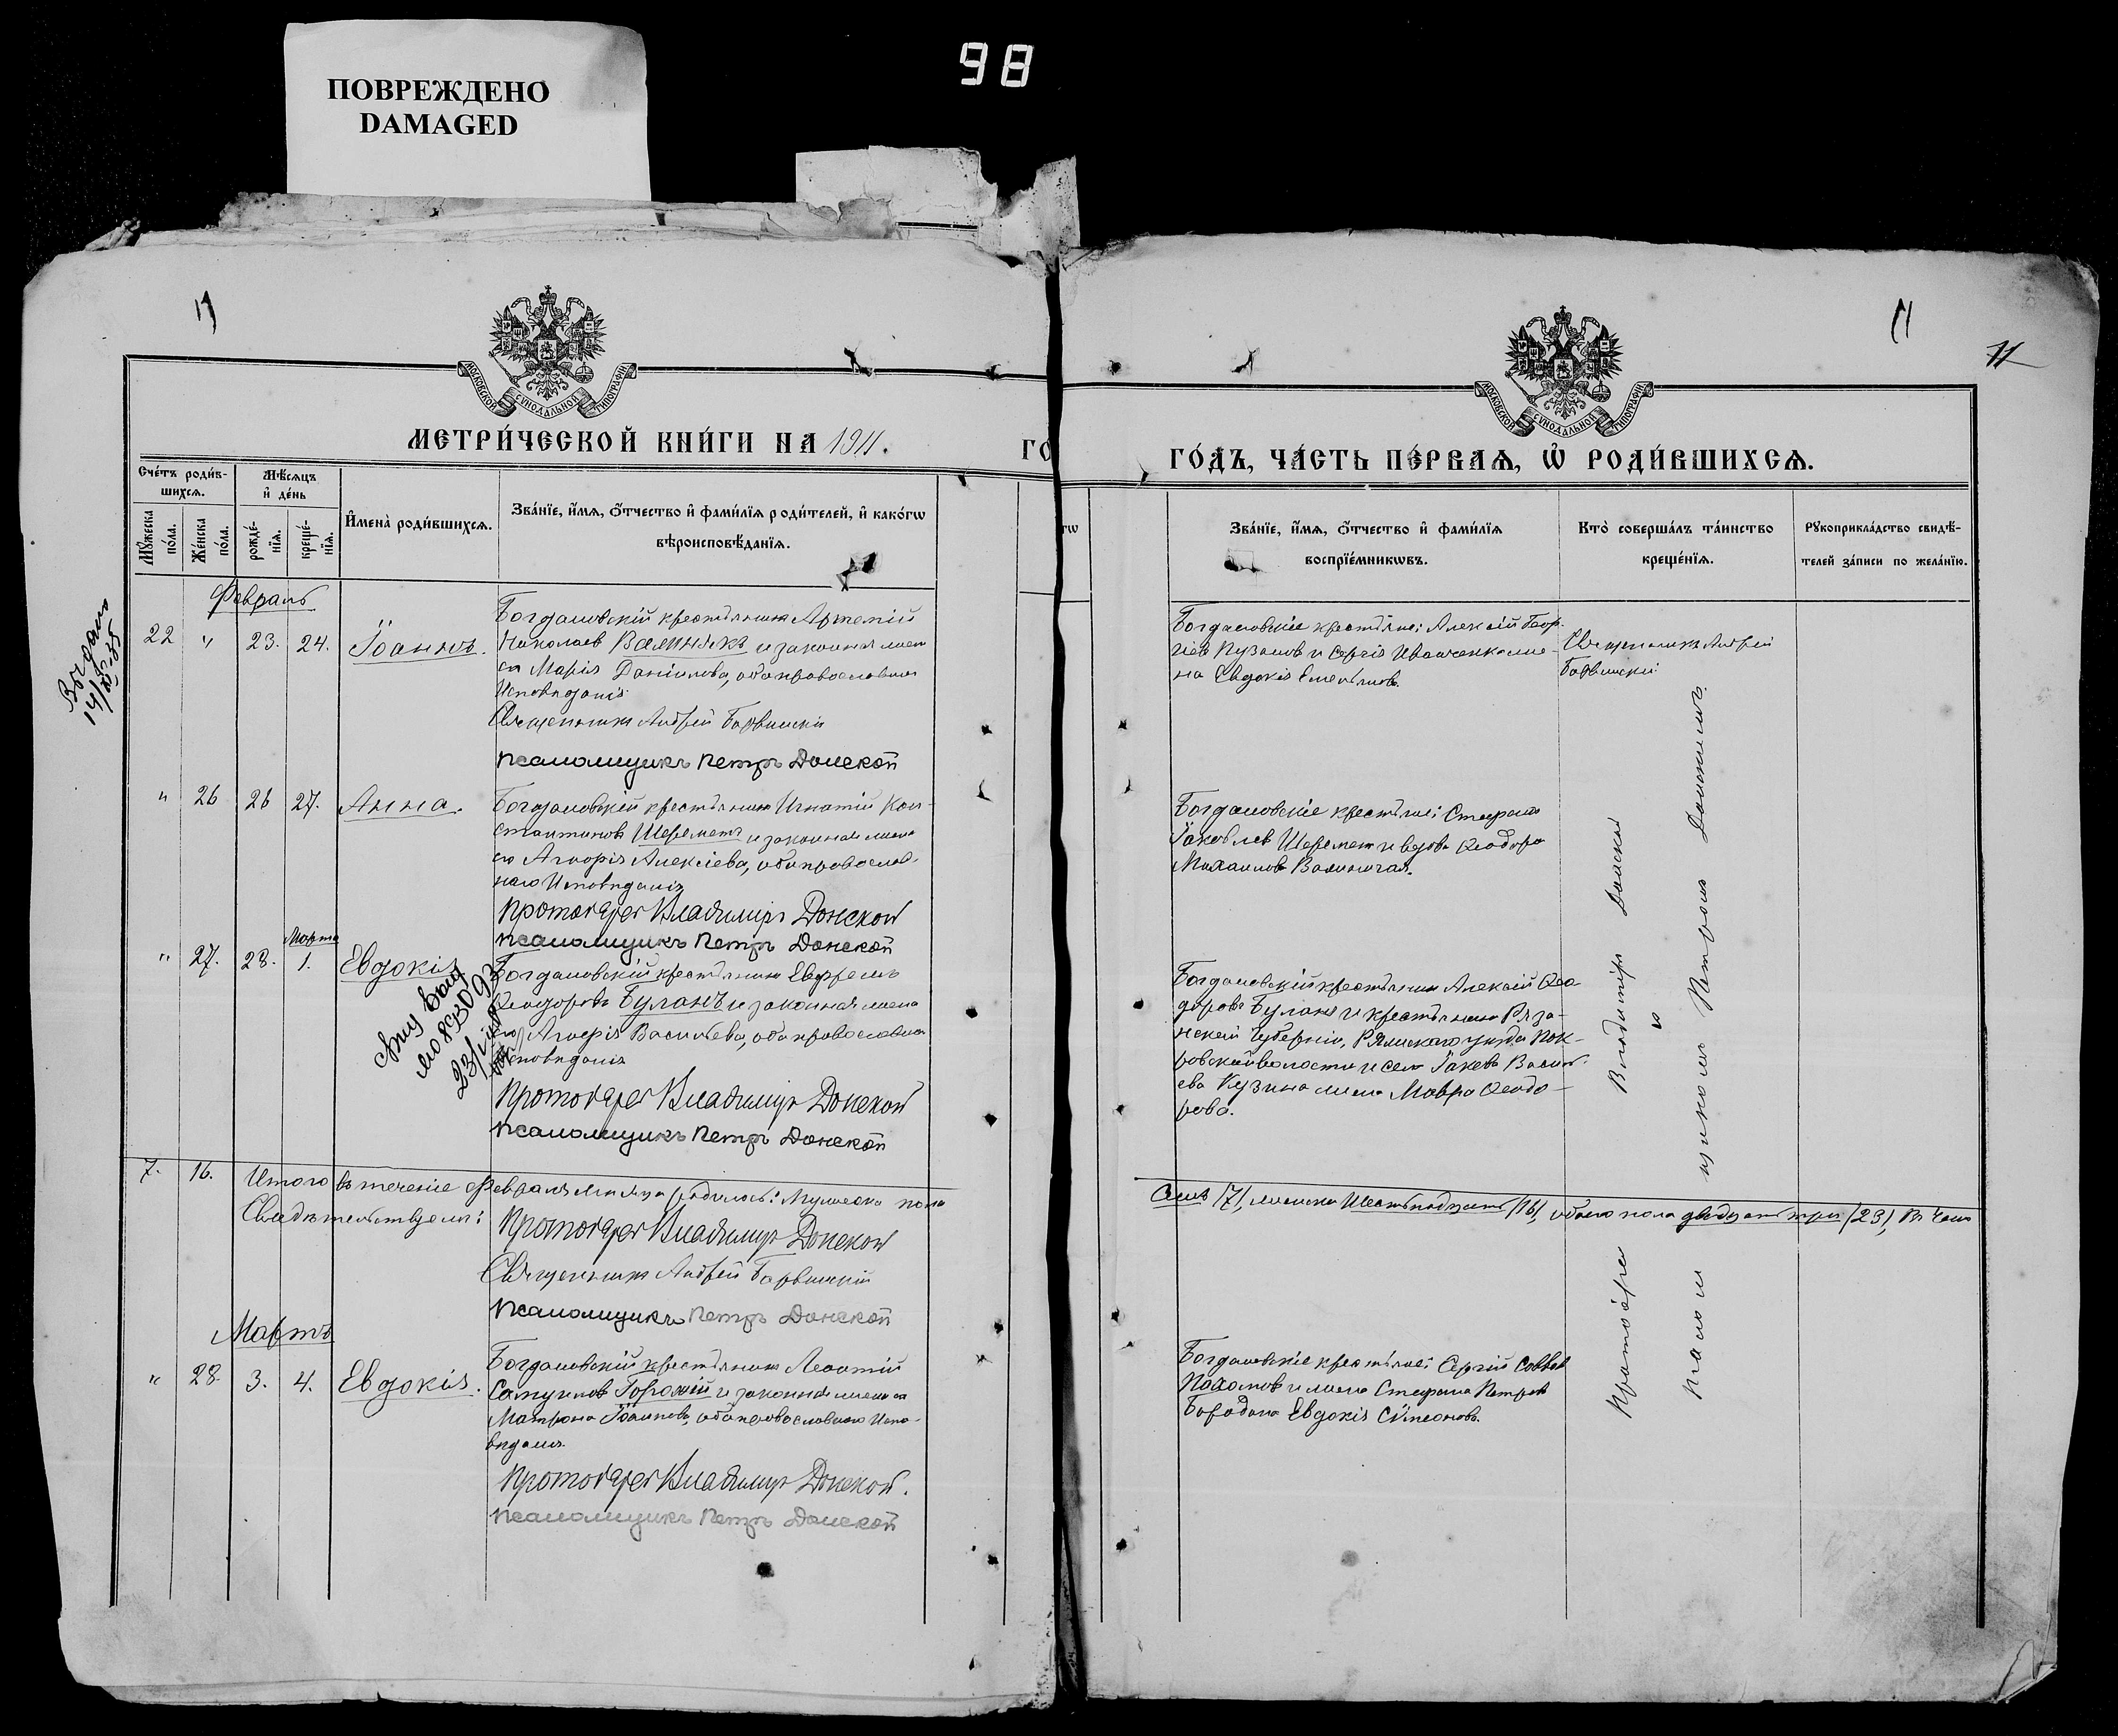 ПОВРЕЖДЕНО
DAMAGED
98
11
МОСКОВСКОЙ СѴНОДАЛЬНОЙ ТИПОГРАФІИ
МЕТРИ́ЧЕСКОЙ КНИ́ГИ НА 1911.
ГО
Сче́тъ роди́в-
шихсѧ.
Мѣ́сѧцъ
и҆ де́нь
Мꙋ́жеска
по́ла.
Же́нска
по́ла.
рожде́-
нїѧ.
креще́-
нїѧ.
И҆мена̀ роди́вшихсѧ.
Зва́нїе, и҆́мѧ, ѻ҆́тчество и҆ фами́лїѧ роди́телей, и҆ како́гѡ
вѣроисповѣ́данїѧ.
Февраль
22 " 23. 24. Іоаннъ.
Богдановскій крестьянинъ Артемій
Николаевъ Валинъкъ и законная жена
его Марія Даніилова, оба православнаго
Исповѣданія
Священникъ Андрей Барвинскій
Псаломщикъ Петръ Донской
" 26 26 27. Анна.
Богдановскій крестьянинъ Игнатій Кон-
стантиновъ Шереметъ и законная жена
его Агафія Алексіева, оба православ-
наго Исповѣданія
Протоіерей Владиміръ Донской
Псаломщикъ Петръ Донской
Марта
" 27. 28. 1. Евдокія
Богдановскій крестьянинъ Евфремъ
Ѳеодоровъ Буланъ и законная жена
его Агафія Васильева, оба православнаго
Исповѣданія
Протоіерей Владиміръ Донской
Псаломщикъ Петръ Донской
7. 16. Итого въ теченіе Февраля мѣсяца родилось: Мужеска пола
Свидѣтельствуемъ:
Протоіерей Владиміръ Донской
Священникъ Андрей Барвинскій
Псаломщикъ Петръ Донской
Мартъ
" 28. 3. 4. Евдокія.
Богдановскій крестьянинъ Леонтій
Самуиловъ Горожій и законная жена его
Матрона Іоаннова, оба православнаго Испо-
вѣданія.
Протоіерей Владиміръ Донской.
Псаломщикъ Петръ Донской
11
11
МОСКОВСКОЙ СѴНОДАЛЬНОЙ ТИПОГРАФІИ
ГО́ДЪ, ЧА́СТЬ ПЕ́РВАѦ, Ѡ҆ РОДИ́ВШИХСѦ.
гѡ
Зва́нїе, и҆́мѧ, ѻ҆́тчество и҆ фами́лїѧ
воспрїе́мникѡвъ.
Кто̀ соверша́лъ та́инство
креще́нїѧ.
Рꙋкоприкла́дство свидѣ́-
телей за́писи по жела́нїю.
Богдановскіе крестьяне: Алексій Геор-
гіевъ Кузановъ и Сергія Иванченка же-
на Евдокія Емельянова.
Священникъ Андрей
Барвинскій
Богдановскіе крестьяне: Стефанъ
Іаковлевъ Шереметъ и вдова Ѳеодора
Михаилова
Богдановскій крестьянинъ Алексій Ѳео-
доровъ Буланъ и крестьянина Ряза-
нской Губерніи, Ряжскаго уѣзда Пок-
ровской волости и села Іакова Василь-
ева Кузина жена Мавра Ѳеодо-
рова.
Семь /7/, женска Шестнадцать /16/, обоего пола двадцать три /23/, въ чемъ
Богдановскіе крестьяне: Сергій Саввинъ
Пахомовъ и жена Стефана Петрова
Бородана Евдокія Сѵмеонова.
Протоіерей Владиміръ Донской
и
псаломщикомъ Петромъ Донскимъ